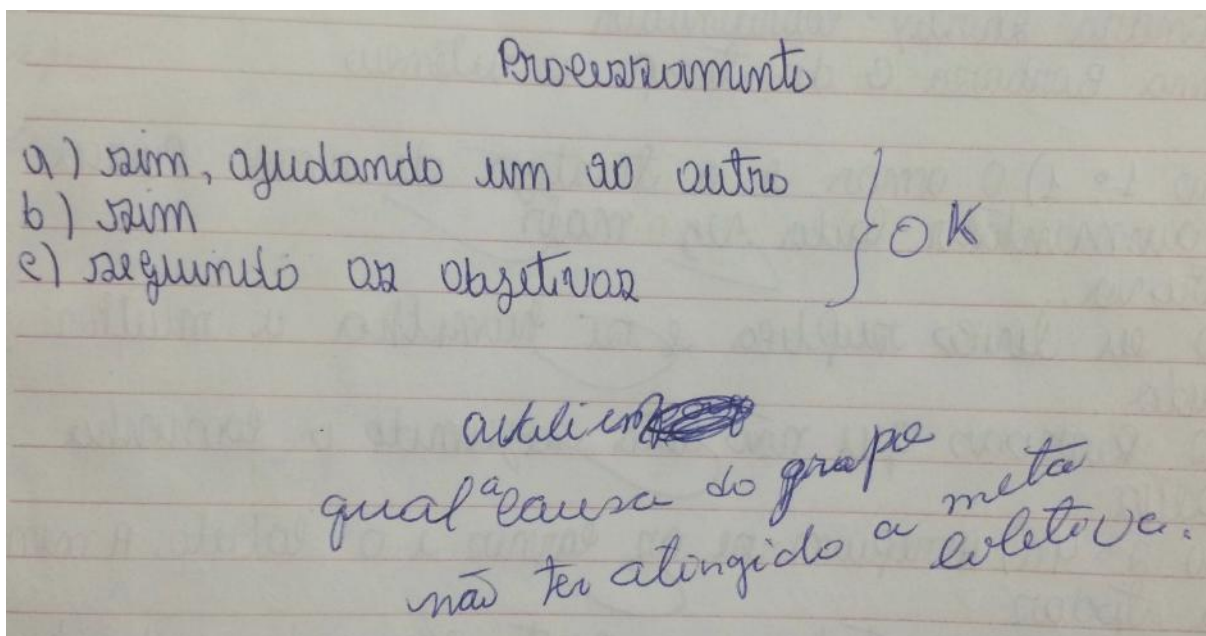 Processamento
a) sim, ajudando um ao outro
b) sim
c) seguindo os objetivos
} OK
avaliem
qual a causa do grupo
não ter atingido a meta
coletiva.